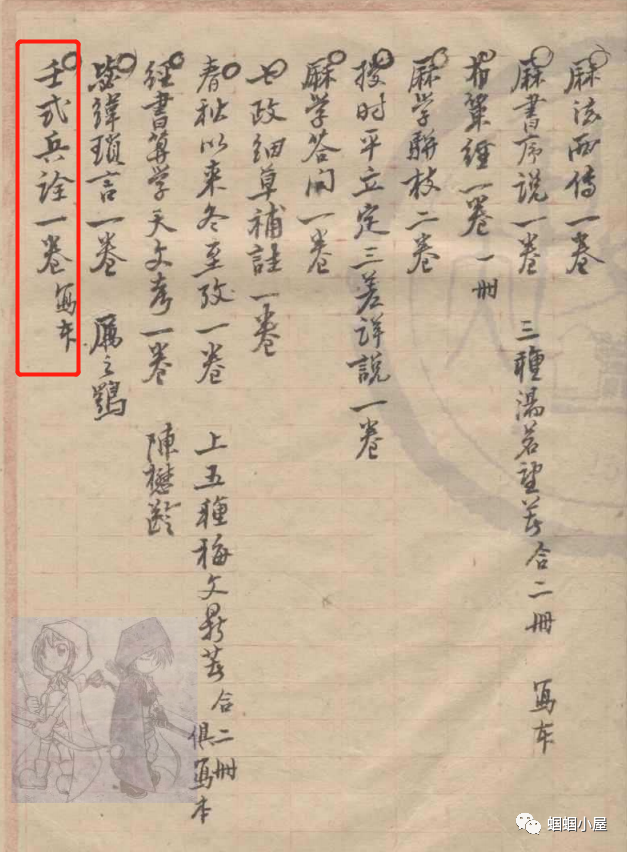 厤法西傳一卷
厤書序説一卷 三種湯若望著合二冊 寫本
布算經一卷一冊
厤學駢枝二卷
授时平立定三差详説一卷
厤学答问一卷
七政细草補註一卷
春秋以来冬至攷一卷 上五種梅文鼎著合二冊俱寫本
經書算学天文考一卷 陳懋齡
毖緯瑣言一卷 厲之鶚
壬式兵詮一卷 寫本
蝈蝈小屋